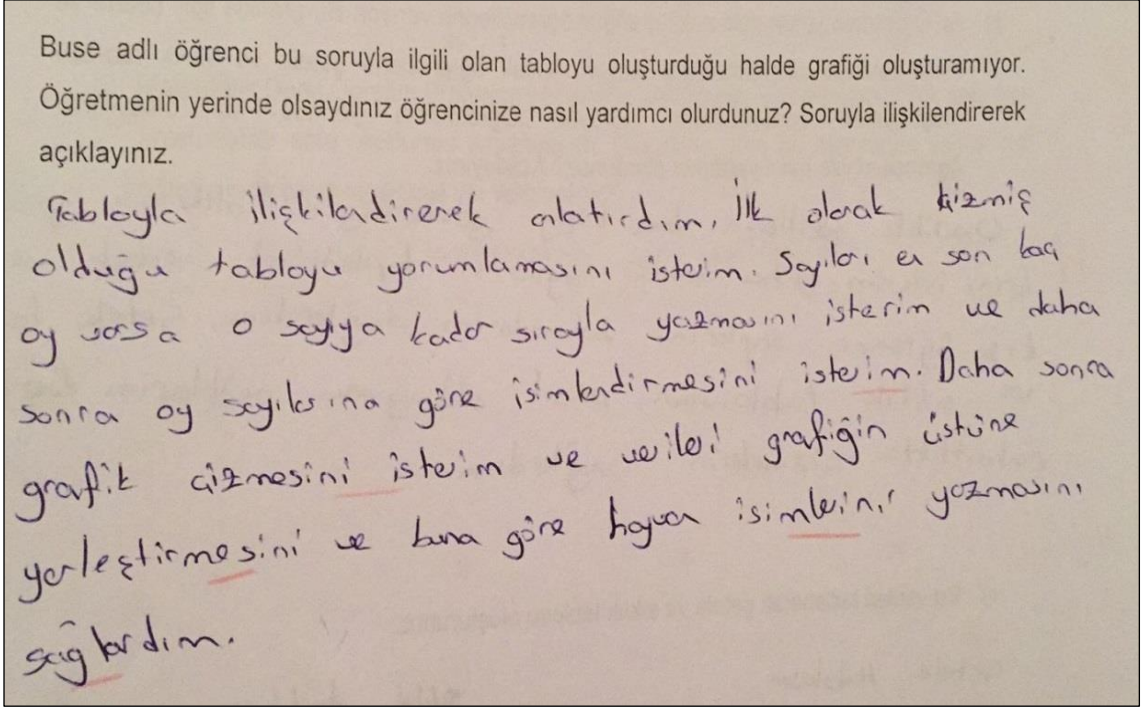 Buse adlı öğrenci bu soruyla ilgili olan tabloyu oluşturduğu halde grafiği oluşturamıyor.
Öğretmenin yerinde olsaydınız öğrencinize nasıl yardımcı olurdunuz? Soruyla ilişkilendirerek
açıklayınız.
Tabloyla ilişkilendirerek anlatırdım. İlk olarak çizmiş
olduğu tabloyu yorumlamasını isterim. Sayıları en son kaç
oy varsa o sayıya kadar sırayla yazmasını isterim ve daha
sonra oy sayılarına göre isimlendirmesini isterim. Daha sonra
grafik çizmesini isterim ve verileri grafiğin üstüne
yerleştirmesini ve buna göre hayvan isimlerini yazmasını
sağlardım.